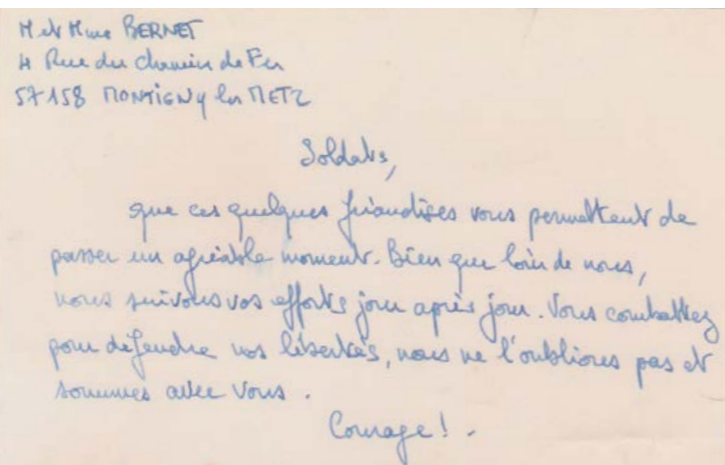 M et Mme BERNET
4 Rue du Chemin de Fer
57158 MONTIGNY les METZ
Soldats,
que ces quelques friandises vous permettent de
passer un agréable moment. Bien que loin de nous,
nous suivons vos efforts jour après jour. Vous combattez
pour défendre nos libertés, nous ne l'oublions pas et
sommes avec vous.
Courage ! .